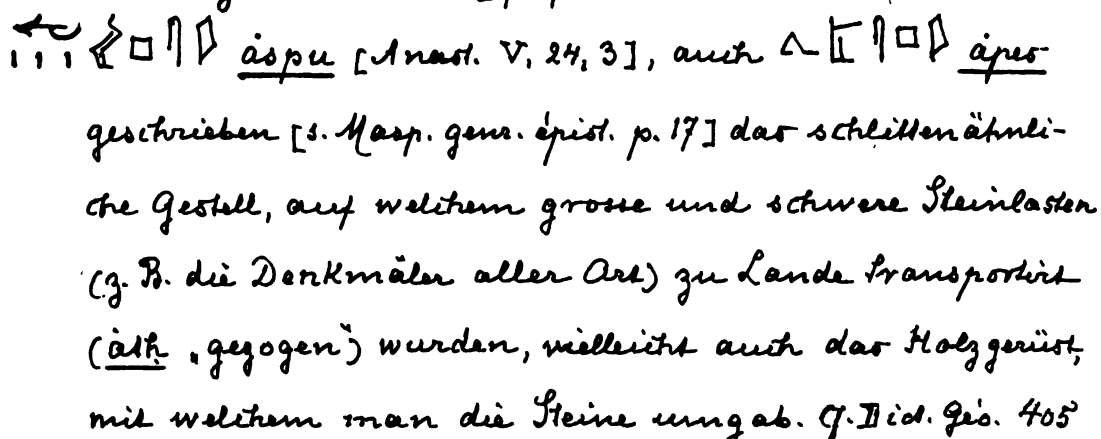 åspu [Anast. V, 24, 3], auch åpes
geschrieben [s. Masp. genr. épist. p. 17] das schlittenähnli-
che Gestell, auf welchem grosse und schwere Steinlasten
(z. B. die Denkmäler aller Art) zu Lande transportirt
(åtḥ „gezogen") wurden, vielleicht auch das Holzgerüst,
mit welchem man die Steine umgab. Cf. Dict. Géo. 405